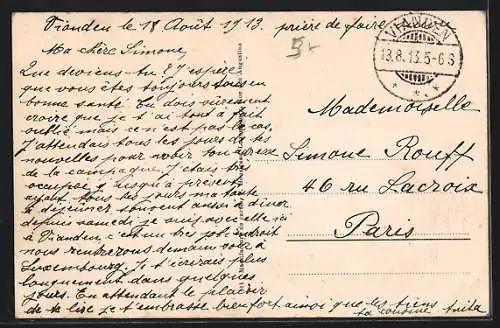 Vianden le 18 Août 1913. prière de faire
Ma chère Simone,
Que deviens-tu? J'espère
que vous êtes toujours tous en
bonne santé. Tu dois sûrement
croire que je t'ai tout à fait
oublié mais ce n'est pas le cas,
J'attendais tous les jours de tes
nouvelles pour avoir ton adresse
de la campagne. J'étais très
occupée jusqu'à présent
ayant tous les jours ma tante
à déjeuner souvent aussi à dîner
depuis samedi je suis avec elle ici
à Vianden c'est un très joli endroit
nous rentrerons demain soir à
Luxembourg. Je t'écrirais plus
longuement dans quelques
jours. En attendant le plaisir
de te lire je t'embrasse bien fort ainsi que les tiens
ta cousine
VIANDEN
18.8.13.5-6S
Mademoiselle
Simone Rouff
46 rue Lacroix
Paris